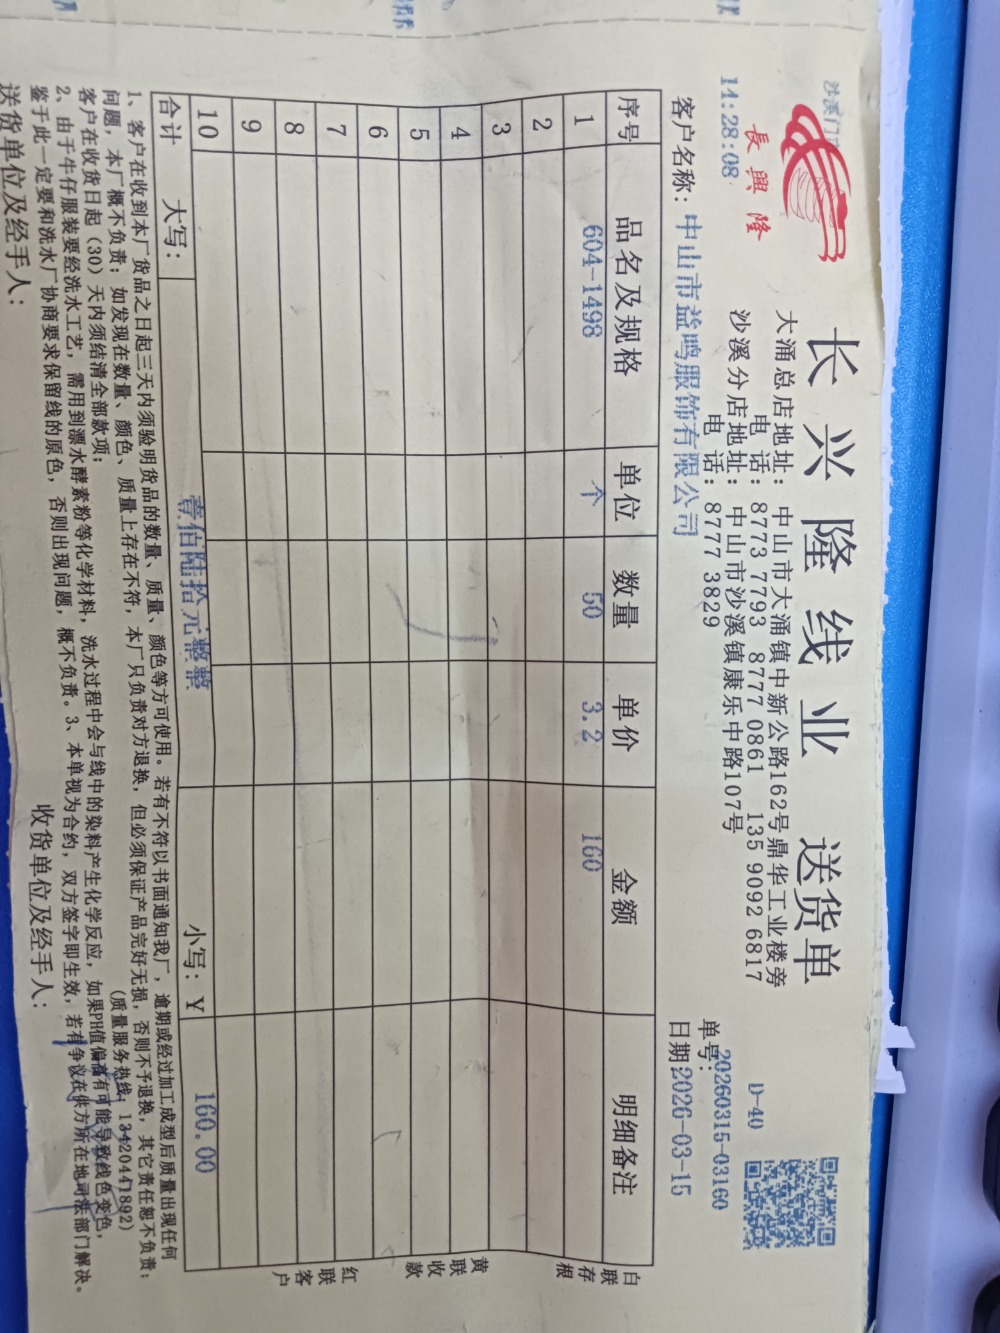 長興隆
长兴隆线业 送货单
D-40
大涌总店地址：中山市大涌镇中新公路162号鼎华工业楼旁
电 话：8773 7793 8777 0861 135 9092 6817
沙溪分店地址：中山市沙溪镇康乐中路107号
电 话：8777 3829
14:28:08
单号：20260315-03160
客户名称：中山市益鸣服饰有限公司
日期：2026-03-15
序号 品名及规格 单位 数量 单价 金额 明细备注
1 604-1498 个 50 3.2 160
2
3
4
5
6
7
8
9
10
合计 大写：壹佰陆拾元整整 小写：¥ 160.00
白联存根
黄联收款
红联客户
1、客户在收到本厂货品之日起三天内须验明货品的数量、质量、颜色等方可使用。若有不符以书面通知我厂，逾期或经过加工成型后质量出现任何
问题，本厂概不负责；如发现在数量、颜色、质量上存在不符，本厂只负责对方退换，但必须保证产品完好无损，否则不予退换，其它责任恕不负责；
客户在收货日起（30）天内须结清全部款项； (质量服务热线：13420441892)
2、由于牛仔服装要经洗水工艺，需用到漂水酵素粉等化学材料，洗水过程中会与线中的染料产生化学反应，如果PH值偏高有可能导致线色变色，
鉴于此一定要和洗水厂协商要求保留线的原色，否则出现问题，概不负责。3、本单视为合约，双方签字即生效，若有争议在供方所在地司法部门解决。
送货单位及经手人： 收货单位及经手人：